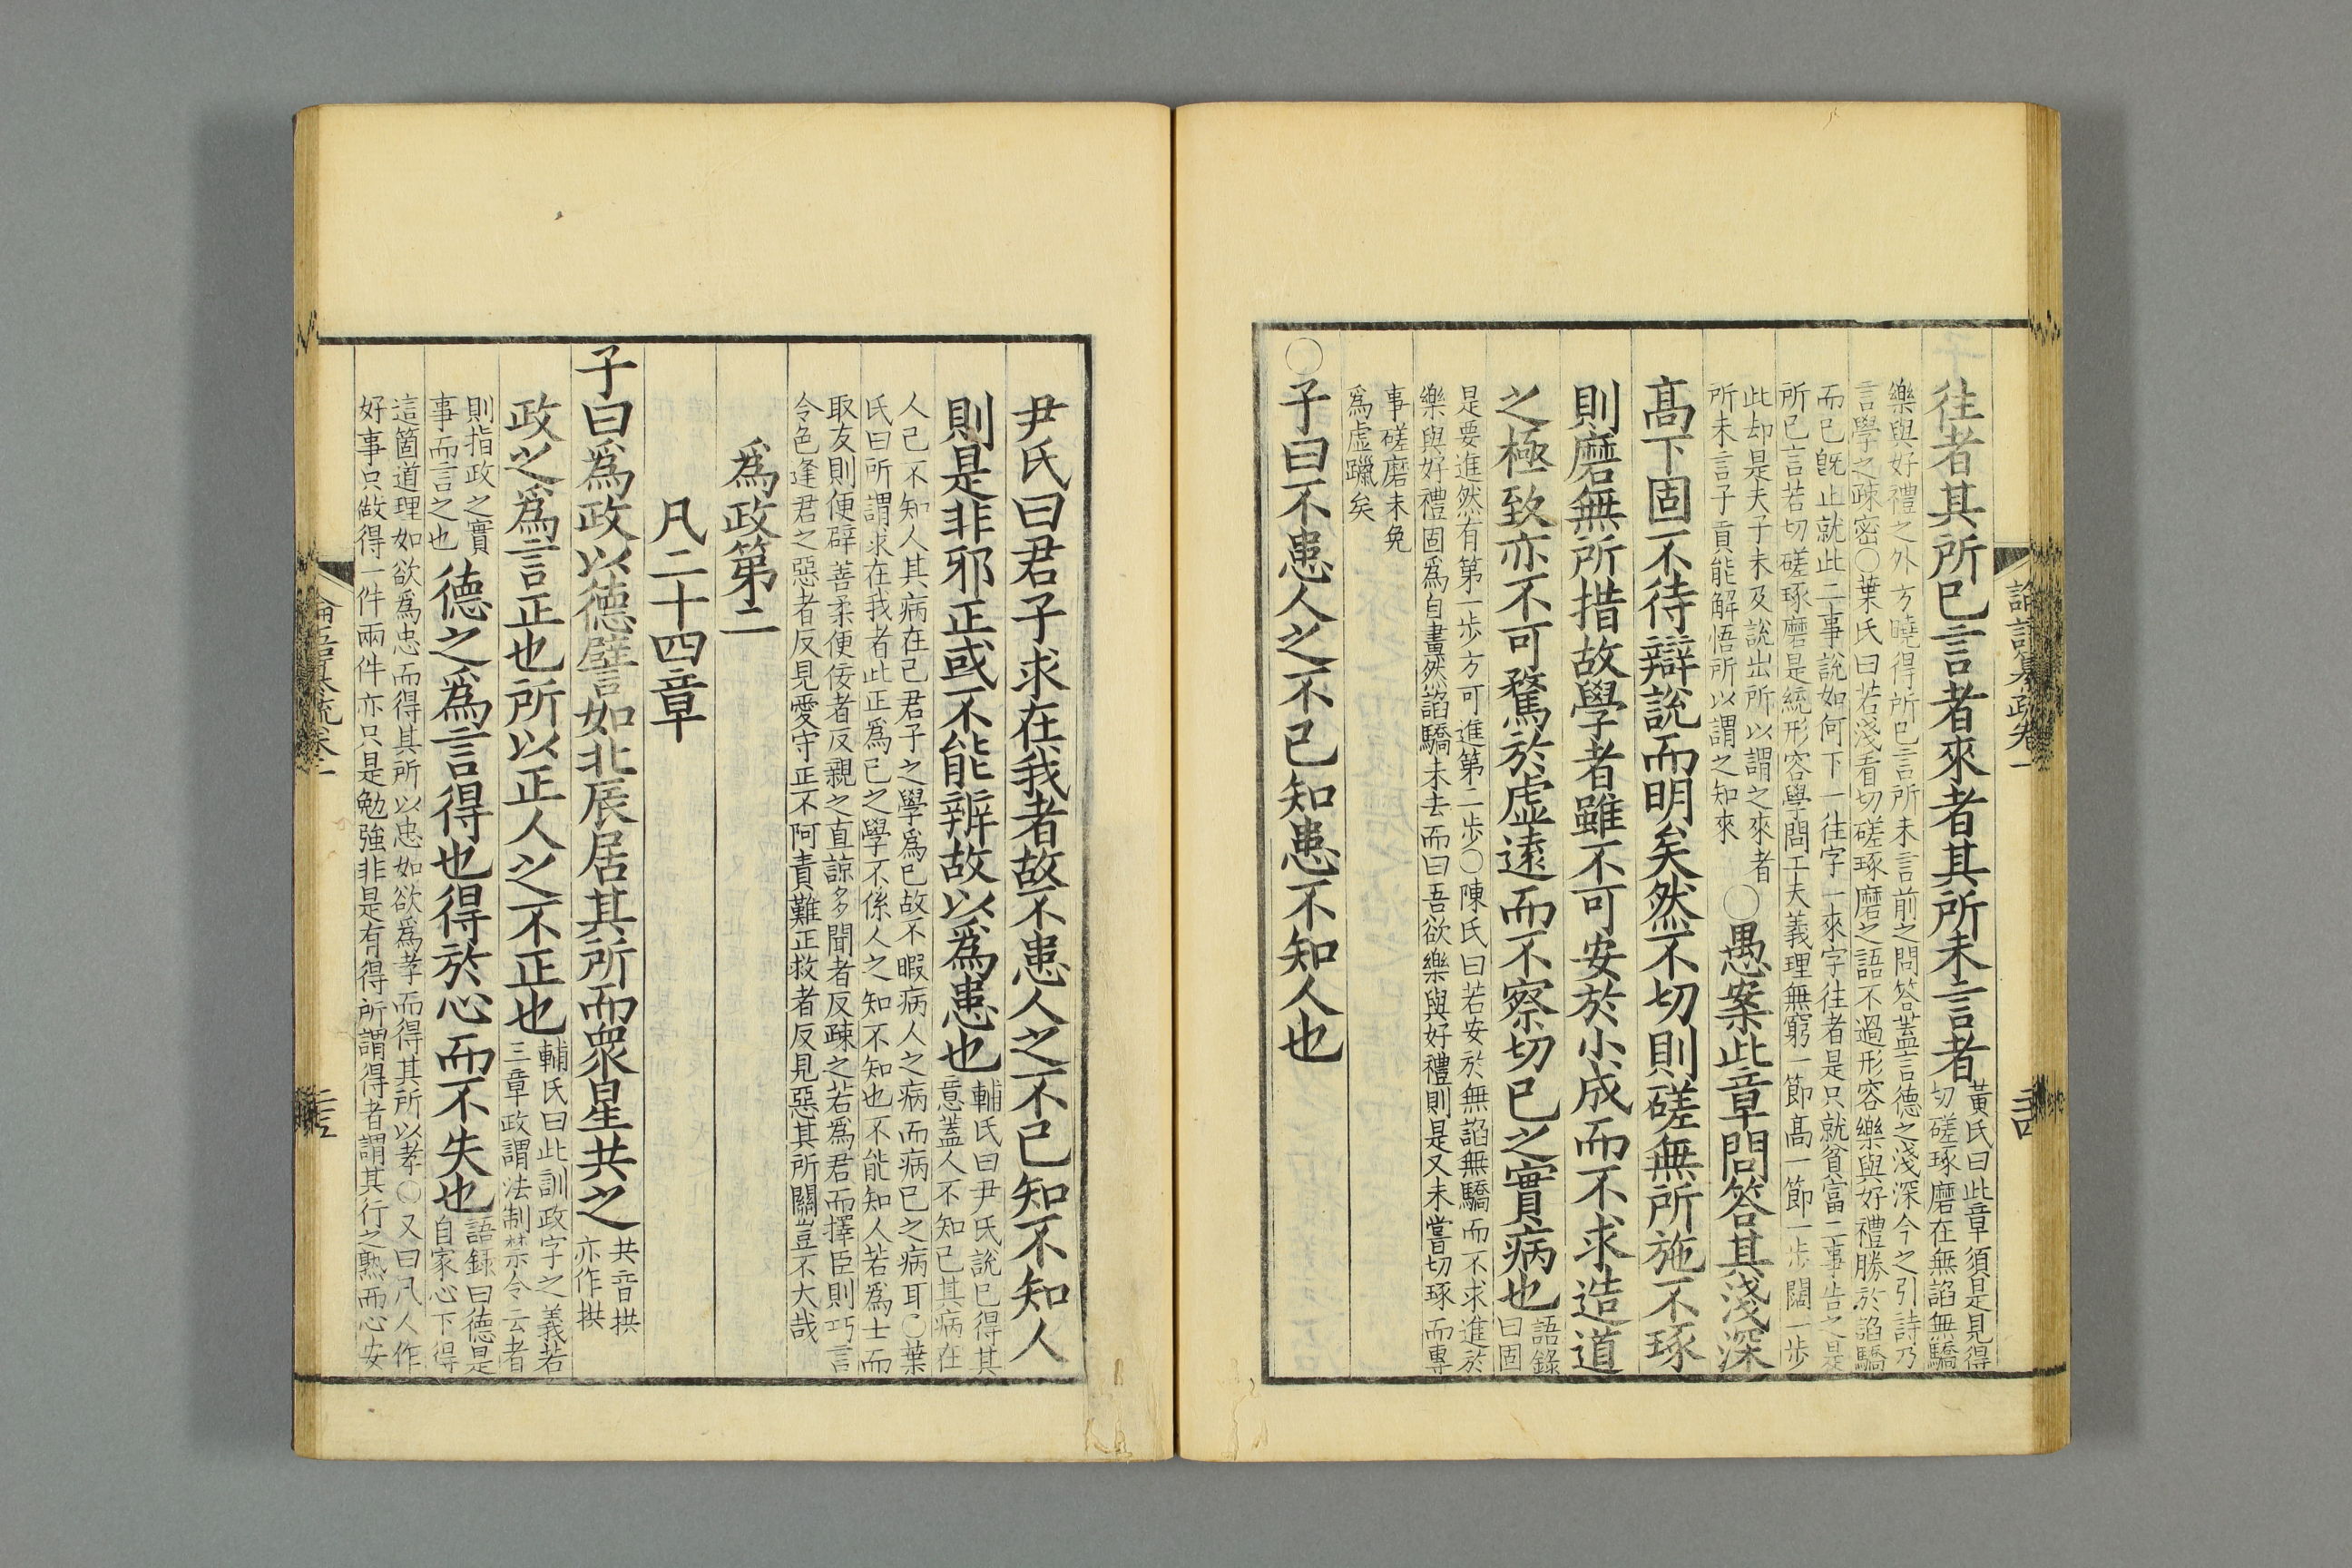 往者其所已言者來者其所未言者黃氏曰此章須是見得切磋琢磨在無諂無驕
樂與好禮之外方曉得所已言所未言前之問答蓋言德之淺深今之引詩乃
言學之疎密〇葉氏曰若淺看切磋琢磨之語不過形容樂與好禮勝於諂驕
而已旣止就此二事說如何下一往字一來字往者是只就貧富二事告之是
所已言若切磋琢磨是統形容學問工夫義理無窮一節髙一節一步闊一步
此却是夫子未及說出所以謂之來者
所未言子貢能解悟所以謂之知來
〇愚案此章問答其淺深
髙下固不待辯說而明矣然不切則磋無所施不琢
則磨無所措故學者雖不可安於小成而不求造道
之極致亦不可騖於虛遠而不察切已之實病也語錄曰固
是要進然有第一步方可進第二步〇陳氏曰若安於無諂無驕而不求進於
樂與好禮固爲自畫然諂驕未去而曰吾欲樂與好禮則是又未嘗切琢而專
事磋磨未免
爲虛躐矣
〇子曰不患人之不己知患不知人也
尹氏曰君子求在我者故不患人之不已知不知人
則是非邪正或不能辨故以爲患也輔氏曰尹氏說已得其意蓋人不知已其病在
人己不知人其病在己君子之學爲已故不暇病人之病而病已之病耳〇葉
氏曰所謂求在我者此正爲已之學不係人之知不知也不能知人若爲士而
取友則便辟善柔便佞者反親之直諒多聞者反疎之若爲君而擇臣則巧言
令色逢君之惡者反見愛守正不阿責難正救者反見惡其所關豈不大哉
爲政第二
凡二十四章
子曰爲政以德譬如北辰居其所而眾星共之共音拱亦作拱
政之爲言正也所以正人之不正也輔氏曰此訓政字之義若三章政謂法制禁令云者
則指政之實
事而言之也
德之爲言得也得於心而不失也語錄曰德是自家心下得
這箇道理如欲爲忠而得其所以忠如欲爲孝而得其所以孝〇又曰凡人作
好事只做得一件兩件亦只是勉強非是有得所謂得者謂其行之熟而心安